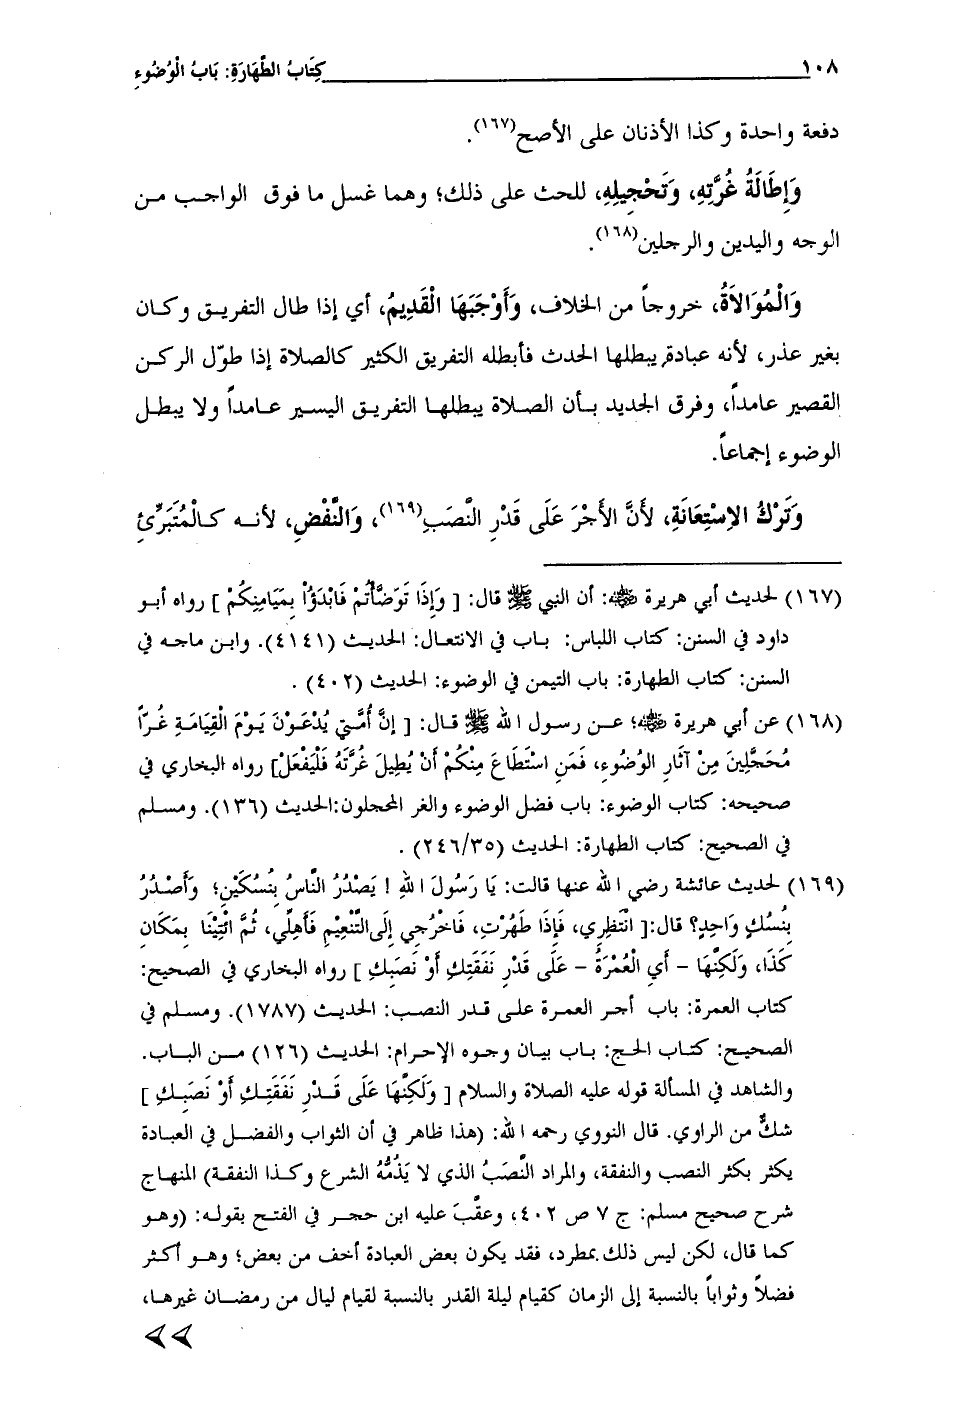 ١٠٨ كِتَابُ الطَّهَارَةِ: بَابُ الْوُضُوءِ
دفعة واحدة وكذا الأذنان على الأصح(١٦٧).
وَإِطَالَةُ غُرَّتِهِ، وَتَحْجِيلِهِ، للحث على ذلك؛ وهما غسل ما فوق الواجب من
الوجه واليدين والرجلين(١٦٨).
وَالْمُوَالاَةُ، خروجاً من الخلاف، وَأَوْجَبَهَا الْقَدِيمُ، أي إذا طال التفريق وكان
بغير عذر، لأنه عبادة يبطلها الحدث فأبطله التفريق الكثير كالصلاة إذا طوّل الركن
القصير عامداً، وفرق الجديد بأن الصلاة يبطلها التفريق اليسير عامداً ولا يبطل
الوضوء إجماعاً.
وَتَرْكُ الاِسْتِعَانَةِ، لأَنَّ الأَجْرَ عَلَى قَدْرِ النَّصَبِ(١٦٩)، وَالنَّفْضِ، لأنه كَالْمُتَبَرِّئِ
(١٦٧) لحديث أبي هريرة ﵁: أن النبي ﷺ قال: [ وَإِذَا تَوَضَّأْتُمْ فَابْدَؤُاْ بِمَيَامِنِكُمْ ] رواه أبو
داود في السنن: كتاب اللباس: باب في الانتعال: الحديث (٤١٤١). وابن ماجه في
السنن: كتاب الطهارة: باب التيمن في الوضوء: الحديث (٤٠٢) .
(١٦٨) عن أبي هريرة ﵁؛ عن رسول الله ﷺ قال: [ إِنَّ أُمَّتِي يُدْعَوْنَ يَوْمَ الْقِيَامَةِ غُرّاً
مُحَجَّلِينَ مِنْ آثَارِ الوُضُوءِ، فَمَنِ اسْتَطَاعَ مِنْكُمْ أَنْ يُطِيلَ غُرَّتَهُ فَلْيَفْعَلْ] رواه البخاري في
صحيحه: كتاب الوضوء: باب فضل الوضوء والغر المحجلون:الحديث (١٣٦). ومسلم
في الصحيح: كتاب الطهارة: الحديث (٢٤٦/٣٥) .
(١٦٩) لحديث عائشة رضي الله عنها قالت: يَا رَسُولَ اللهِ ! يَصْدُرُ النَّاسُ بِنُسُكَيْنِ؛ وَأَصْدُرُ
بِنُسُكٍ وَاحِدٍ؟ قال:[ انْتَظِرِي، فَإِذَا طَهُرْتِ، فَاخْرُجِي إِلَى التَّنْعِيْمِ فَأَهِلِّي، ثُمَّ ائْتِيْنَا بِمَكَانِ
كَذَا، وَلَكِنَّهَا - أَيِ الْعُمْرَةُ - عَلَى قَدْرِ نَفَقَتِكِ أَوْ نَصَبِكِ ] رواه البخاري في الصحيح:
كتاب العمرة: باب أجر العمرة على قدر النصب: الحديث (١٧٨٧). ومسلم في
الصحيح: كتاب الحج: باب بيان وجوه الإحرام: الحديث (١٢٦) من الباب.
والشاهد في المسألة قوله عليه الصلاة والسلام [ وَلَكِنَّهَا عَلَى قَدْرِ نَفَقَتِكِ أَوْ نَصَبِكِ ]
شكٌّ من الراوي. قال النووي رحمه الله: (هذا ظاهر في أن الثواب والفضل في العبادة
يكثر بكثر النصب والنفقة، والمراد النَّصَبُ الذي لا يَذُمُّهُ الشرع وكذا النفقة) المنهاج
شرح صحيح مسلم: ج ٧ ص ٤٠٢، وعقَّبَ عليه ابن حجر في الفتح بقوله: (وهو
كما قال، لكن ليس ذلك بمطرد، فقد يكون بعض العبادة أخف من بعض؛ وهو أكثر
فضلاً وثواباً بالنسبة إلى الزمان كقيام ليلة القدر بالنسبة لقيام ليال من رمضان غيرها،